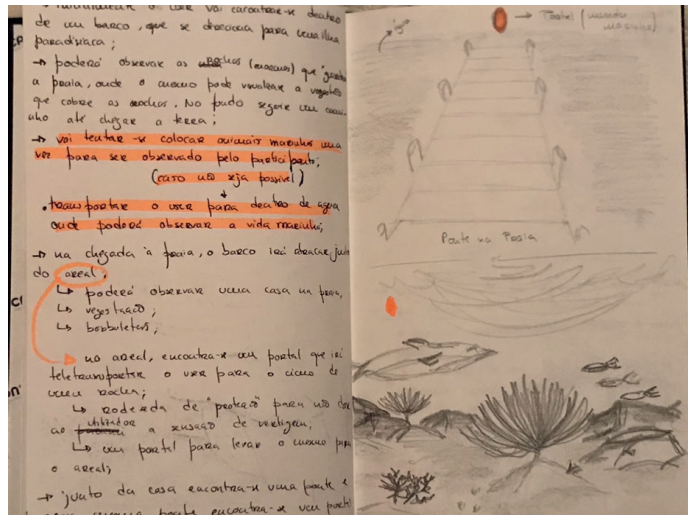 • inicialmente o user vai encontrar-se dentro
de um barco, que se direciona para uma ilha
paradisíaca;
→ poderá observar as rochas (marcus) que
a praia, onde o mesmo pode visualizar a
que cobre as rochas. No fundo segue um
até chegar a terra;
→ vai tentar-se colocar animais marinhos uma
vez para ser observado pelo participante;
(caso não seja possível)
• transportar o user para dentro de agua
onde poderá observar a vida marinha;
→ na chegada à praia, o barco irá atracar junto
do areal,
↳ poderá observar uma casa na praia,
↳ vegetação;
↳ borboletas;
→ no areal, encontra-se um portal que irá
teletransportar o user para o cimo de
uma rocha;
↳ rodeada de "proteção" para não dar
ao utilizador a sensação de vertigem;
↳ um portal para levar o mesmo para
o areal;
→ junto da casa encontra-se uma ponte e
ponte encontra-se um portal
→ Portal (
Ponte na Praia